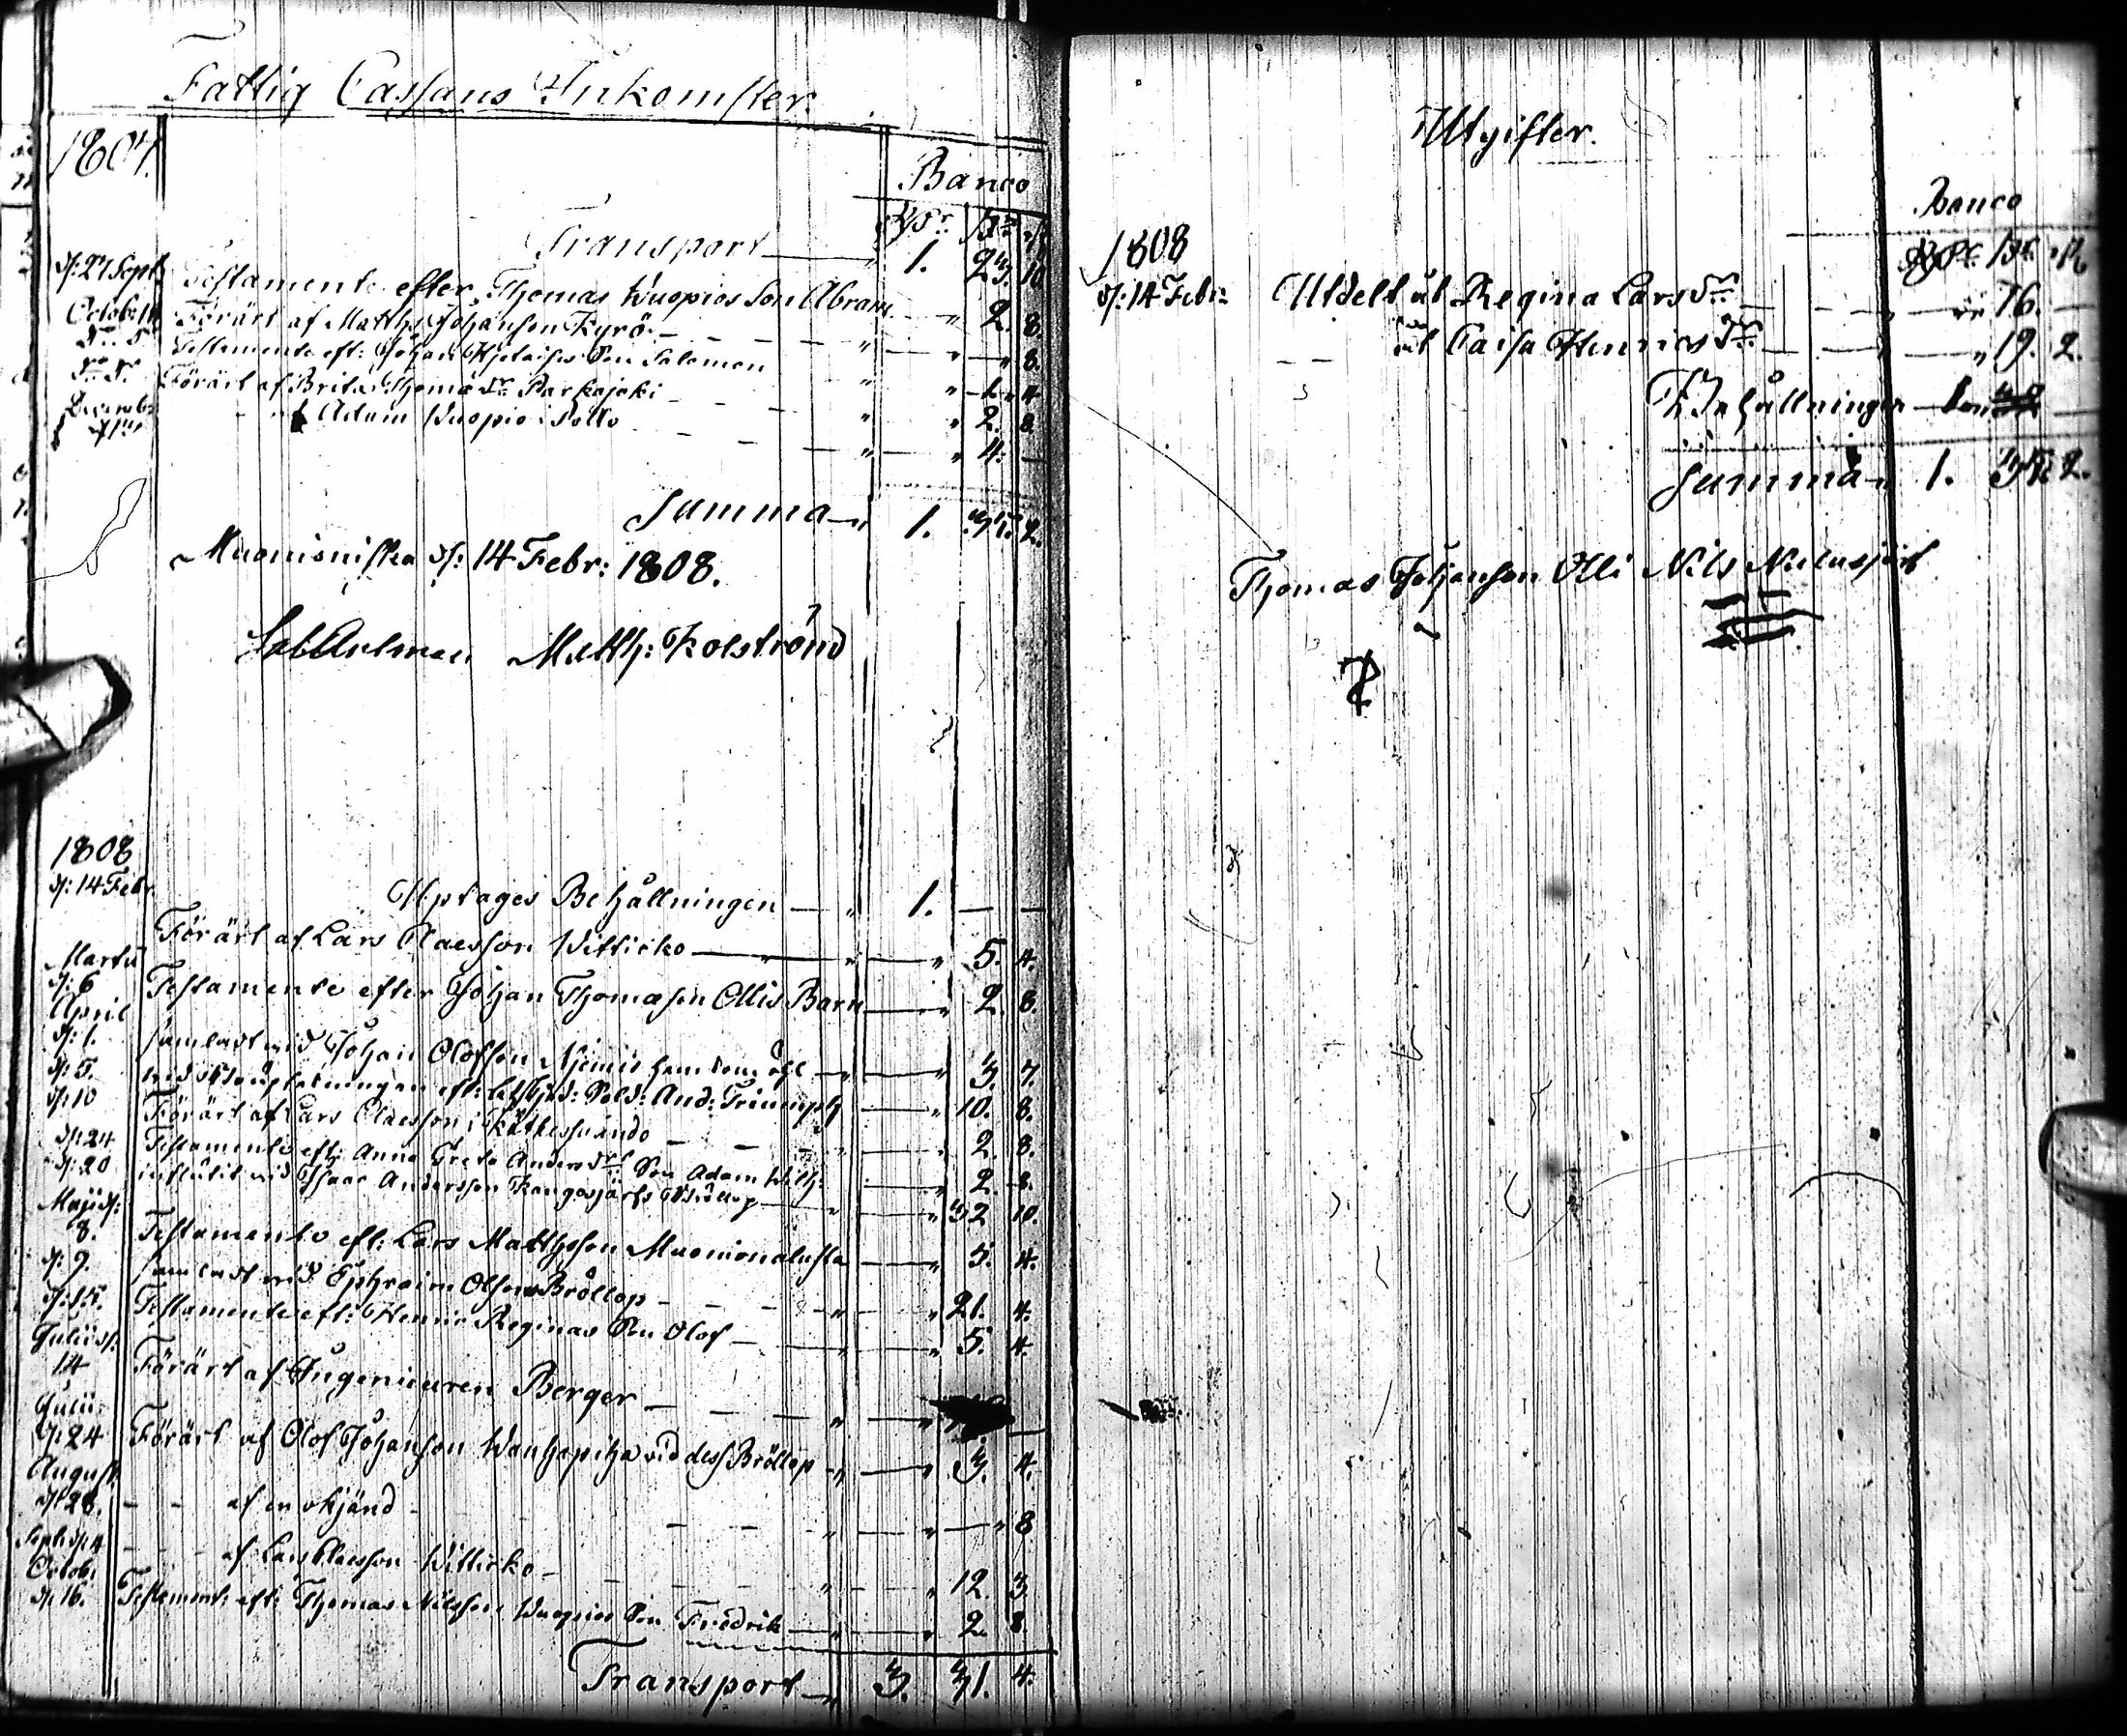 Fattig Cassans Inkomster.
1807.
Banco
Rdr. sk. r.
Transport 1. 23. 10
d: 27 Sept. Testamente efter Thomas Wuopios Son Abram 2. 8.
Octob: Förärt af Matths Johanson Kyrö 8.
Testamente eft: Johan Son Salomon
Förärt af Brita Thomædr Parkajoki 2. 8.
Decemb: af Adam Wuopio 4. —
Summa 1. 35. 2.
Muonioniska d: 14 Febr: 1808.
Matth: Kolström
1808
d: 14 Febr. Uptages Behållningen 1. — —
Förärt af Lars Claesson Witticko 5. 4.
Martii
d: 6 Testamente efter Johan Thomason Ollis Barn 2. 8.
April
d: 1. samladt vid Johan Olofson Niemis 3. 7.
d: 5. eft: Sold: And: Triumph 10. 8.
d: 10 Förärt af Lars Claesson i Kätkesuando 2. 8.
d: 24 Testamente eft: Anna Greta Andersdrs Son Adam Wilh: 2. 8.
d: 20 influtit vid Isaac Andersson Kangosjärfs Bröllop 32 10.
Maji d:
8. Testamente eft: Lars Matthsson Muonionalusta 5. 4.
d: 9. samladt vid Ephraim Olsons Bröllop 21. 4.
d: 15. Testamente eft: Henric Reginas Son Olof 5. 4.
Julii d:
14 Förärt af Ingenieuren Berger
Julii
d: 24 Förärt af Olof Johanson Wanhapiha vid dess Bröllop 3. 4.
August.
d: 28. - - af en okjänd 8
Sept: d: 4 - - af Lars Claesson Witticko 12. 3.
Octob:
d: 16. Testament: eft: Thomas Nilsson Wuopios Son Fredrik 2. 8.
Transport 3. 31. 4.
Utgifter.
Banco
1808
d: 14 Febr: Utdelt åt Regina Larsdr 16. —
åt Caisa Henricsdr 19. 2.
Behållningen
Summa 1. 35. 2.
Thomas Johanson Olli Nils